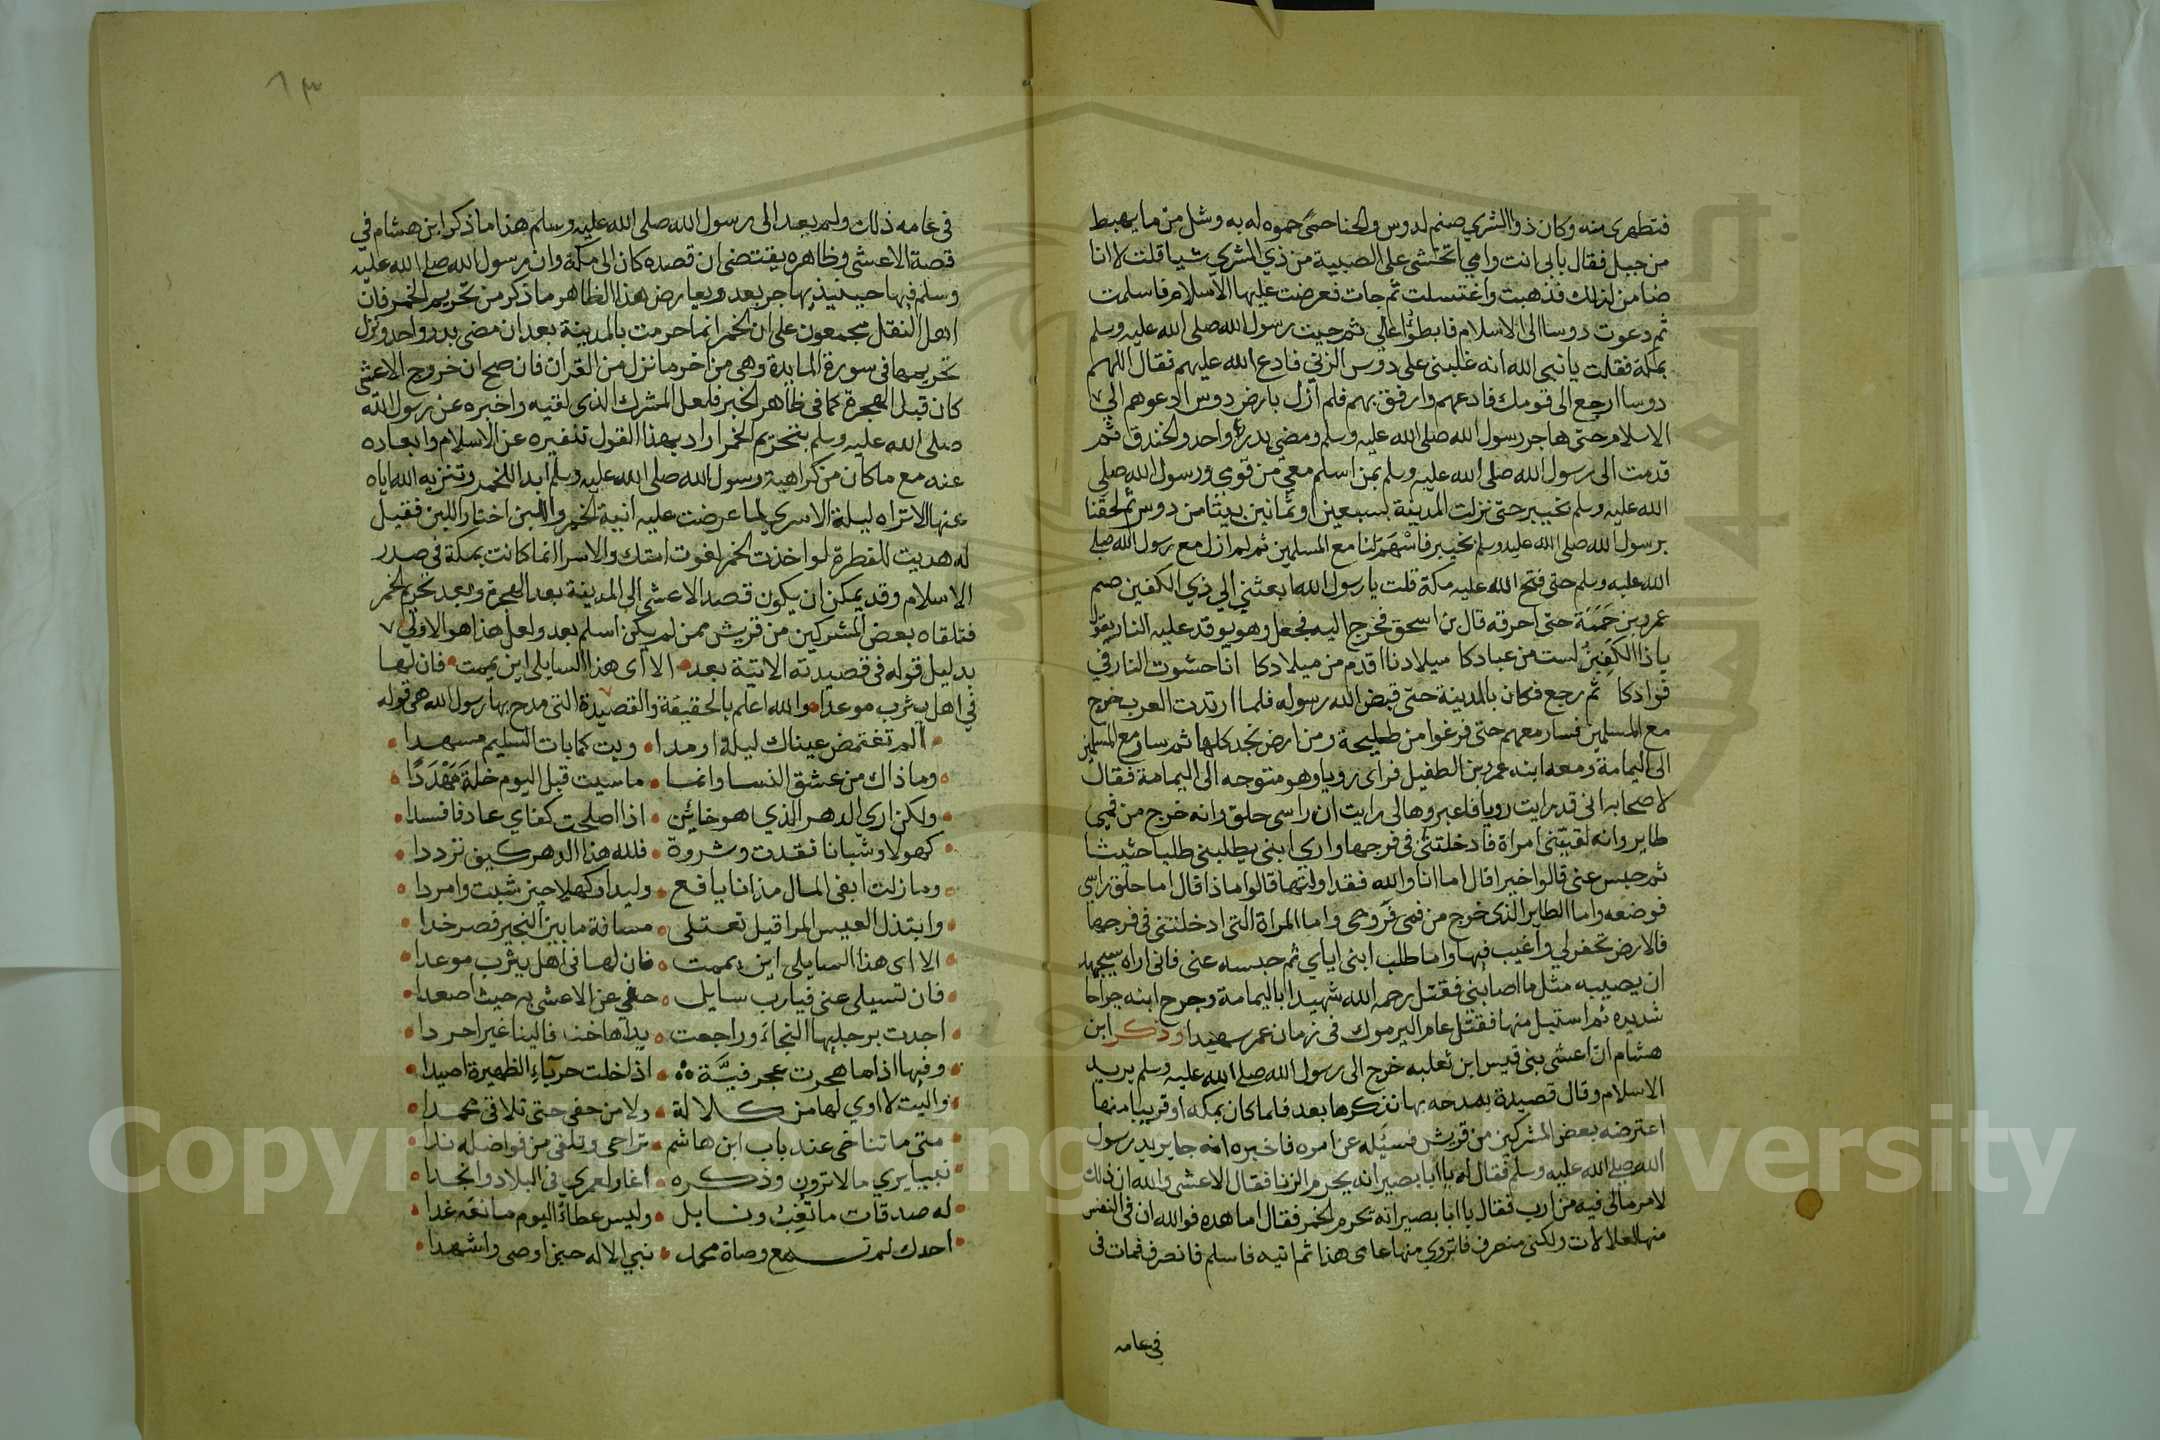 فتطهري منه وكان ذو الشري صنم لدوس والحنا حمًى حموه له به وشل من ما يهبط
من جبل فقال بابي انت وامي اتخشى على الصبية من ذي الشري شيا قلت لا انا
ضامن لذلك فذهبت واغتسلت ثم جات فعرضت عليها الاسلام فاسلمت
ثم دعوت دوسا الى الاسلام فابطؤا علي ثم جيت رسول الله صلى الله عليه وسلم
بمكة فقلت يا نبي الله انه غلبني على دوس الزني فادع الله عليهم فقال اللهم
دوسا ارجع الى قومك فادعهم وارفق بهم فلم ازل بارض دوس ادعوهم الي
الاسلام حتى هاجر رسول الله صلى الله عليه وسلم ومضى بدر واحد والخندق ثم
قدمت الى رسول الله صلى الله عليه وسلم بمن اسلم معي من قومي ورسول الله صلى
الله عليه وسلم بخيبر حتى نزلت المدينة بسبعين او ثمانين بيتا من دوس ثم لحقنا
برسول الله صلى الله عليه وسلم بخيبر فاسهم لنا مع المسلمين ثم لم ازل مع رسول الله صلى
الله عليه وسلم حتى فتح الله عليه مكة قلت يا رسول الله ابعثني الي ذي الكفين صم
عمرو بن حممة حتى احرقه قال بن اسحق فخرج اليه فجعل وهو يوقد عليه النار يقول
يا ذا الكفين لست من عبادكا ميلادنا اقدم من ميلادكا انا حشوت النار في
فوادكا ثم رجع فكان بالمدينة حتى قبض الله رسوله فلما ارتدت العرب خرج
مع المسلمين فسار معهم حتى فرغوا من طليحة ومن ارض نجد كلها ثم سار مع المسلمين
الى اليمامة ومعه ابنه عمرو بن الطفيل فراى رويا وهو متوجه الى اليمامة فقال
لاصحابه اني قد رايت رويا فاعبروها لي رايت ان راسي حلق وانه خرج من فمي
طاير وانه لقيتني امراة فادخلتني في فرجها واري ابني يطلبني طلبا حثيثا
ثم حبس عني قالوا خيرا قال اما انا والله فقد اولتها قالوا ماذا قال اما حلق راسي
فوضعه واما الطاير الذي خرج من فمي فروحي واما المراة التي ادخلتني في فرجها
فالارض تحفر لي واغيب فيها واما طلب ابني اياي ثم حبسه عني فاني اراه سيجهد
ان يصيبه مثل ما اصابني فقتل رحمه الله شهيدا باليمامة وجرح ابنه جراحا
شديده ثم استبل منها فقتل عام اليرموك في زمان عمر شهيدا وذكر ابن
هشام ان اعشى بني قيس ابن ثعلبه خرج الى رسول الله صلى الله عليه وسلم يريد
الاسلام وقال قصيدة يمدحه بها نذكرها بعد فلما كان بمكه او قريبا منها
اعترضه بعض المشركين من قريش فسيله عن امره فاخبره انه جا يريد رسول
الله صلى الله عليه وسلم فقال له يا ابا بصير انه يحرم الزنا فقال الاعشى والله ان ذلك
لامر مالي فيه من ارب فقال يا ابا بصير انه يحرم الخمر فقال اما هده فوالله ان في النفس
منها لعلالات ولكني منصرف فاتروي منها عامي هذا ثم اتيه فاسلم فانصرف فمات في
في عامه
٨٣
في عامه ذلك ولم يعد الى رسول الله صلى الله عليه وسلم هذا ما ذكر ابن هشام في
قصة الاعشى وظاهره يقتضى ان قصده كان الى مكة وان رسول الله صلى الله عليه
وسلم فيها حينيذ لم يهاجر بعد ويعارض هذا الظاهر ما ذكر من تحريم الخمر فان
اهل النقل مجمعون على ان الخمر انما حرمت بالمدينة بعد ان مضى بدر واحد ونزل
تحريمها في سورة المايدة وهي من اخر ما نزل من القران فان صح ان خروج الاعشى
كان قبل الهجرة كما في ظاهر الخبر فلعل المشرك الذي لقيه واخبره عن رسول الله
صلى الله عليه وسلم بتحريم الخمر اراد بهذا القول تنفيره عن الاسلام وابعاده
عنه مع ما كان من كراهية رسول الله صلى الله عليه وسلم ابدا للخمر وتنزيه الله اياه
عنها الا تراه ليلة الاسري لما عرضت عليه انية الخمر واللبن اختار اللبن فقيل
له هديت للفطرة لو اخذت الخمر لغوت امتك والاسرا انما كانت بمكة في صدر
الاسلام وقد يمكن ان يكون قصد الاعشى الى المدينة بعد الهجرة وبعد تحريم الخمر
فتلقاه بعض المشركين من قريش ممن لم يكن اسلم بعد ولعل هذا هو الاولي
بدليل قوله في قصيدته الاتية بعد الا اي هذا السايلي اين يممت فان لها
في اهل يثرب موعدا والله اعلم بالحقيقة والقصيدة التي مدح بها رسول الله هي قوله
الم تغتمض عيناك ليلة ارمدا وبت كما بات السليم مسهدا
وما ذاك من عشق النسا وانما تناسيت قبل اليوم خلة مهددا
ولكن اري الدهر الذي هو خائن اذا اصلحت كفاي عاد فافسدا
كهولا وشبانا فقدت وثروة فلله هذا الدهر كيف ترددا
وما زلت ابغي المال مذ انا يافع وليدا وكهلا حين شبت وامردا
وابتذل العيس المراقيل تعتلى مسافة ما بين النجير فصرخدا
الا اى هذا السايلى اين يممت فان لها في اهل يثرب موعدا
فان تسيلى عني فيا رب سايل حفي عن الاعشى به حيث اصعدا
اجدت برجليها النجاء وراجعت يداها خنافا لينا غير احردا
وفيها اذا ما هجرت عجرفية اذا خلت حرباء الظهيرة اصيدا
واليت لا اوي لها من كلالة ولا من حفى حتى تلاقى محمدا
متى ما تناخى عند باب ابن هاشم تراحى وتلقى من فواضله ندا
نبيا يري ما لا ترون وذكره اغار لعمري في البلاد وانجدا
له صدقات ما تغب ونايل وليس عطاء اليوم مانعه غدا
اجدك لم تسمع وصاة محمد نبي الاله حين اوصى واشهدا